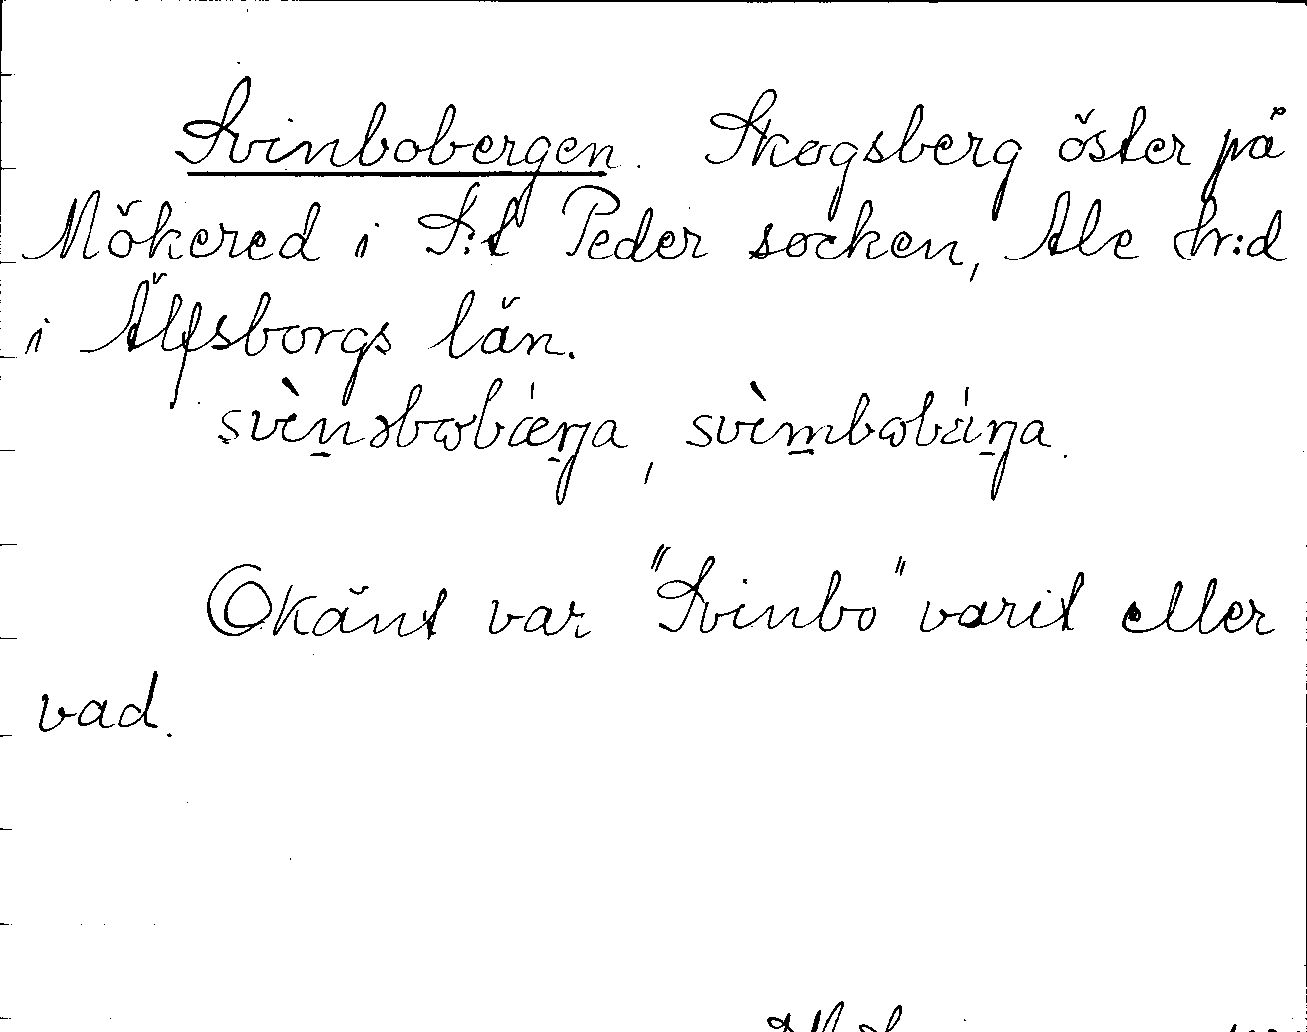 Svinbobergen. Skogsberg öster på
Mökered i S:t Peder socken, Ale hr:d
i Älfsborgs län.
svìn̲əbωbǽrŋa, svìm̲bωbáŋa.
Okänt var "Svinbo" varit eller
vad.